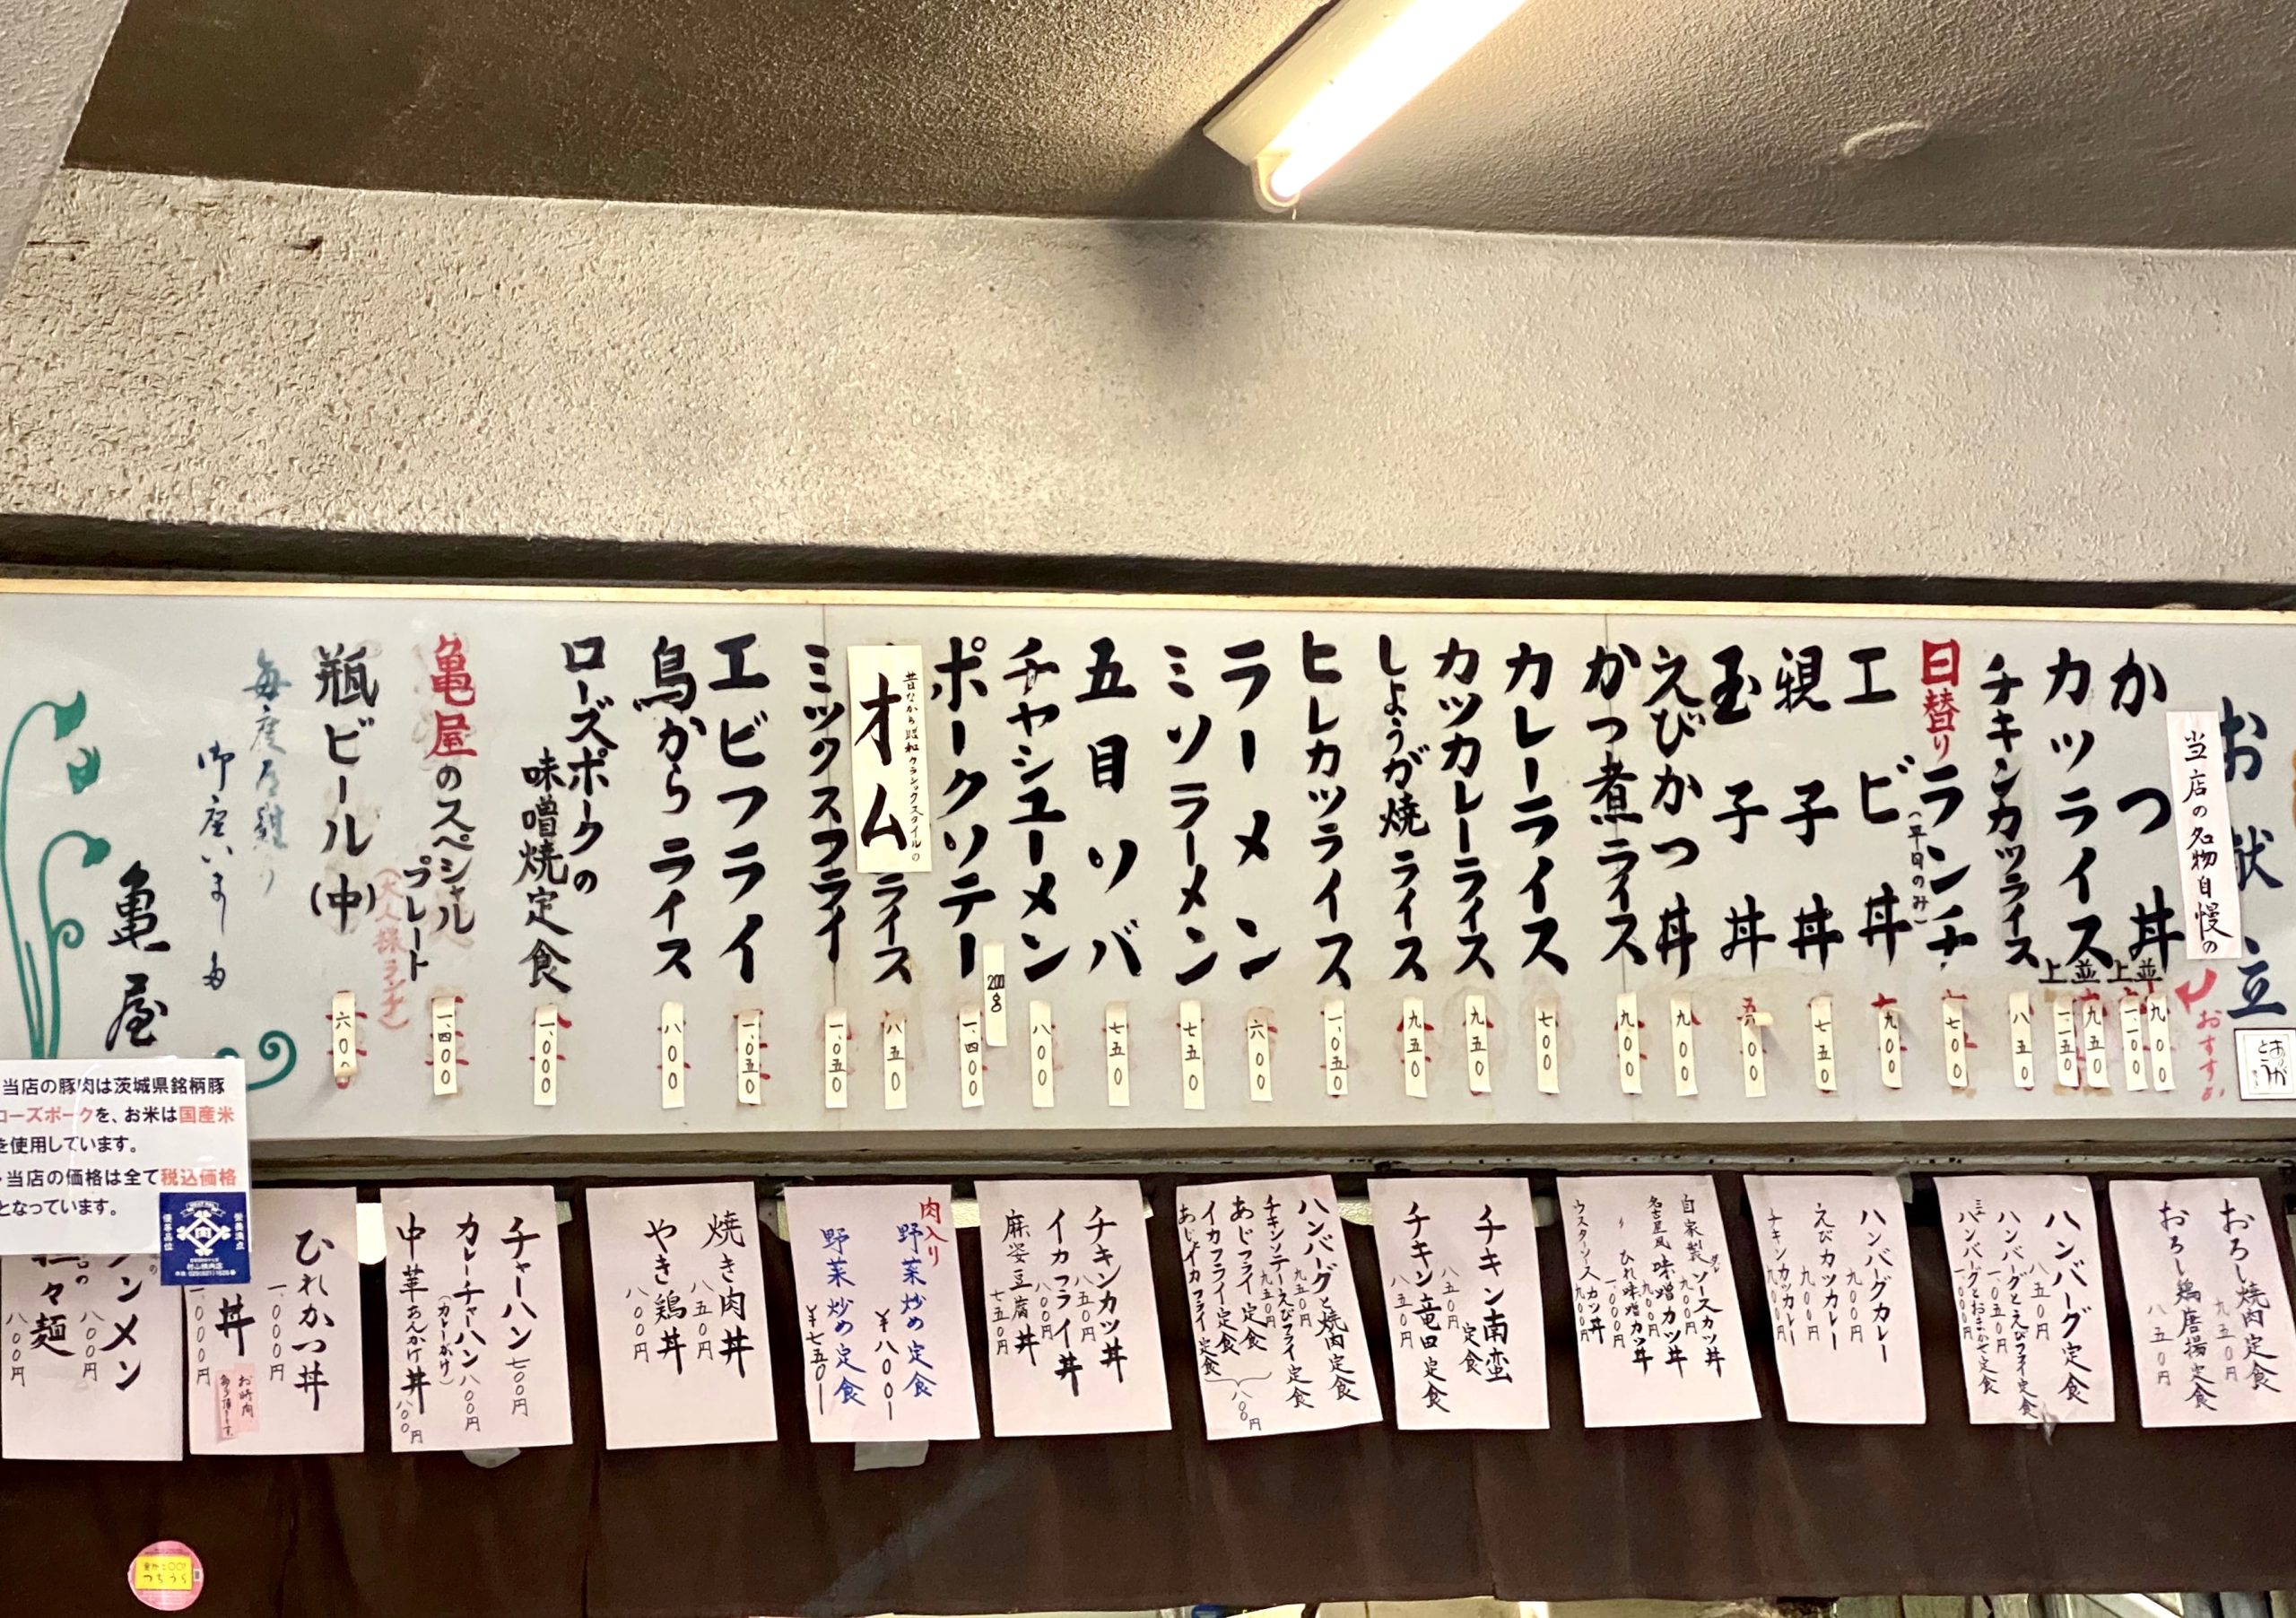 お献立
当店の名物自慢の
おすすめ
かつ丼
並 九〇〇
上 一、一〇〇
カツライス
並 九五〇
上 一、一五〇
チキンカツライス
八五〇
日替りランチ
(平日のみ)
七〇〇
エビ丼
九〇〇
親子丼
七五〇
玉子丼
えびかつ丼
九〇〇
かつ煮ライス
九〇〇
カレーライス
七〇〇
カツカレーライス
九五〇
しょうが焼ライス
九五〇
ヒレカツライス
一、〇五〇
ラーメン
六〇〇
ミソラーメン
七五〇
五目ソバ
七五〇
チャシューメン
八〇〇
ポークソテー
200g
一、四〇〇
昔ながら昭和クラシックスタイルの
オムライス
八五〇
ミックスフライ
一、〇五〇
エビフライ
一、〇五〇
鳥からライス
八〇〇
ローズポークの
味噌焼定食
一、〇〇〇
亀屋のスペシャル
プレート
(大人様ランチ)
一、四〇〇
瓶ビール(中)
六〇〇
毎度有難う
御座います
亀屋
当店の豚肉は茨城県銘柄豚
ローズポークを、お米は国産米
を使用しています。
当店の価格は全て税込価格
となっています。
おろし焼肉定食
九五〇円
おろし鶏唐揚定食
八五〇円
ハンバーグ定食
八五〇円
ハンバーグとえびフライ定食
一、〇五〇円
ミニハンバーグとおまかせ定食
一、〇〇〇円
ハンバーグカレー
九〇〇円
えびカツカレー
九〇〇円
チキンカツカレー
九〇〇円
自家製ソースカツ丼
九〇〇円
名古屋風味噌カツ丼
九〇〇円
〃ひれ味噌カツ丼
一、〇〇〇円
ウスターソースカツ丼
九〇〇円
チキン南蛮定食
八五〇円
チキン竜田定食
八五〇円
ハンバーグと焼肉定食
九五〇円
チキンソテーえびフライ定食
九五〇円
あじフライ定食
イカフライ定食
あじイカフライ定食
八〇〇円
チキンカツ丼
八五〇円
イカフライ丼
八〇〇円
麻婆豆腐丼
七五〇円
肉入り
野菜炒め定食
￥八〇〇ー
野菜炒め定食
￥七五〇ー
焼き肉丼
八五〇円
やき鶏丼
八〇〇円
チャーハン
七〇〇円
カレーチャーハン
(カレーがけ)
八〇〇円
中華あんかけ丼
八〇〇円
ひれかつ丼
一、〇〇〇円
丼
一、〇〇〇円
メン
八〇〇円
々麺
八〇〇円